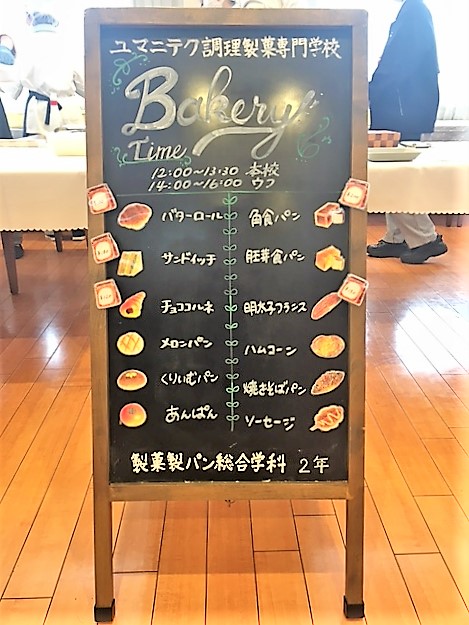 ユマニテク調理製菓専門学校
Bakery
Time
12:00~13:30 本校
14:00~16:00 ウフ
バターロール
サンドイッチ
チョココルネ
メロンパン
くりぃむパン
あんぱん
角食パン
胚芽食パン
明太子フランス
ハムコーン
焼きそばパン
ソーセージ
製菓製パン総合学科 2年